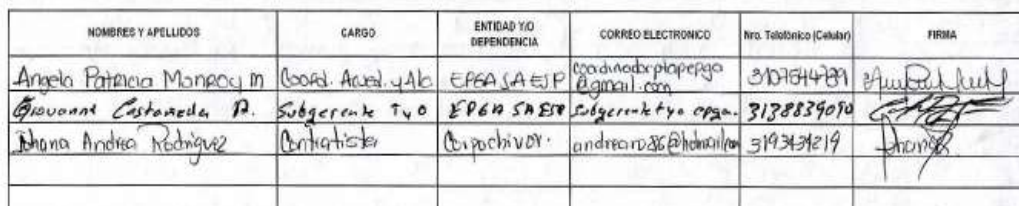 NOMBRES Y APELLIDOS CARGO ENTIDAD Y/O DEPENDENCIA CORREO ELECTRONICO Nro. Telefónico (Celular) FIRMA
Angela Patricia Monroy m Coord. Acued. y Alc EPGA SA ESP coordinadorptapepga@gmail.com
Giovanni Castañeda D. Subgerente TyO EPGA SA ESP Subgerentetyo epga. 3138839090
Jhana Andrea Rodriguez Contratista Corpochivor. 3193434219